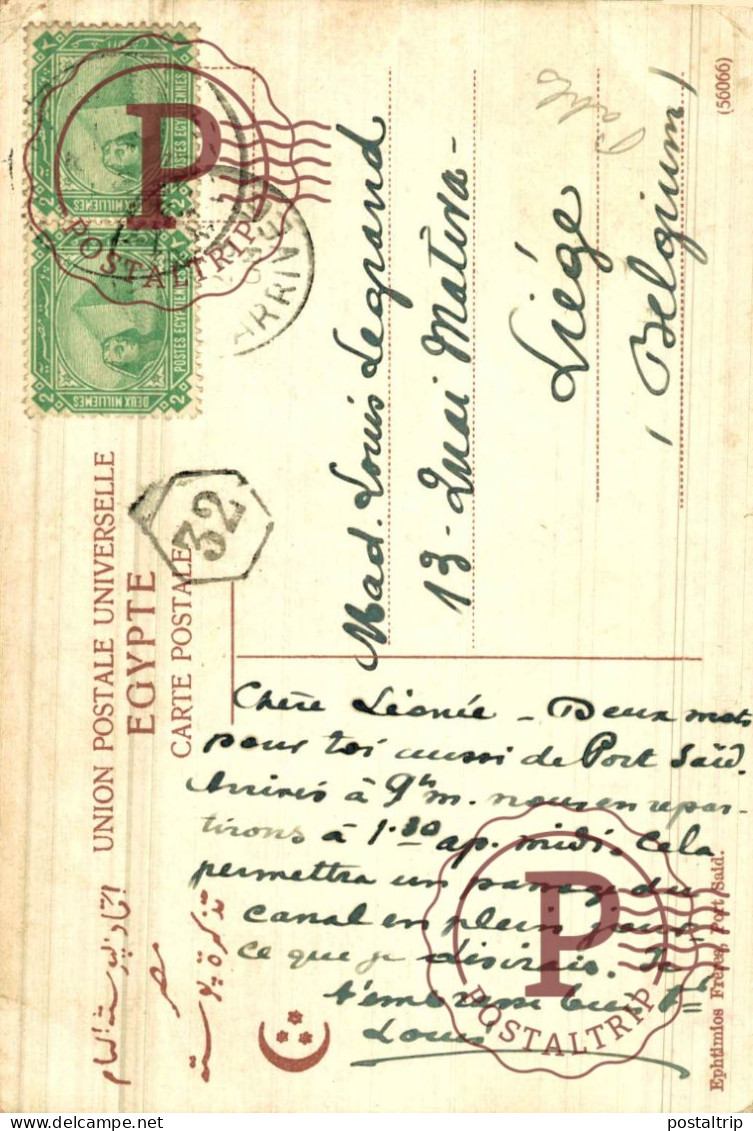 (56066)
UNION POSTALE UNIVERSELLE
EGYPTE
CARTE POSTALE
اتحاد بوسته العام
مصر
تذكرة بوسته
2 2
POSTES EGYPTIENNES
DEUX MILLIEMES
2 2
POSTES EGYPTIENNES
DEUX MILLIEMES
ARRIV
32
P
POSTALTRIP
Mad. Louis Legrand
13 - Quai Mativa -
Liége
(Belgium)
Chère Léonie - Deux mots
pour toi aussi de Port Saïd.
Arrivés à 9h m. nous en repar-
tirons à 1.30 ap. midi. Cela
permettra un passage du
canal en plein jour,
ce que je désirais. Je
t'embrasse bien
Louis
P
POSTALTRIP
Ephtimios Frères, Port Said.
postaltrip
delcampe.net